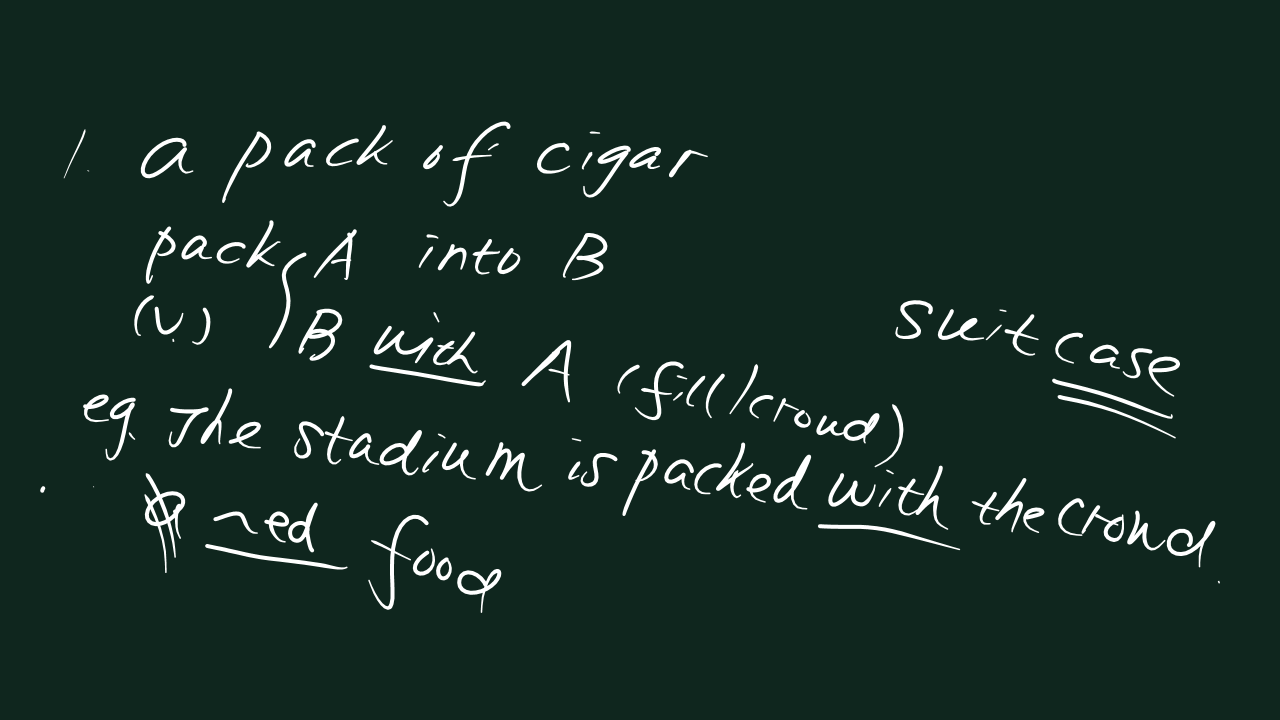 1. a pack of cigar
pack A into B
(v.) B with A (fill/crowd)
suitcase
eg. The stadium is packed with the crowd.
~ed food